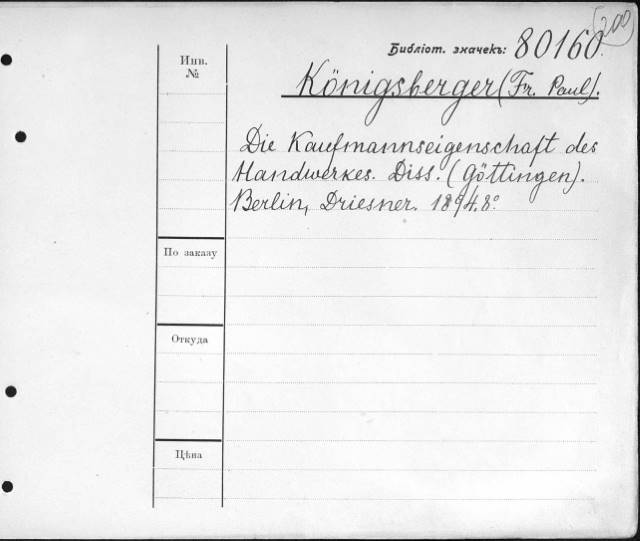 (200)
Библіот. значекъ: 80160.
Инв.
№
Königsberger (Fr. Paul).
Die Kaufmannseigenschaft des
Handwerkes. Diss. (Göttingen).
Berlin, Driesner. 1894. 8°.
По заказу
Откуда
Цѣна